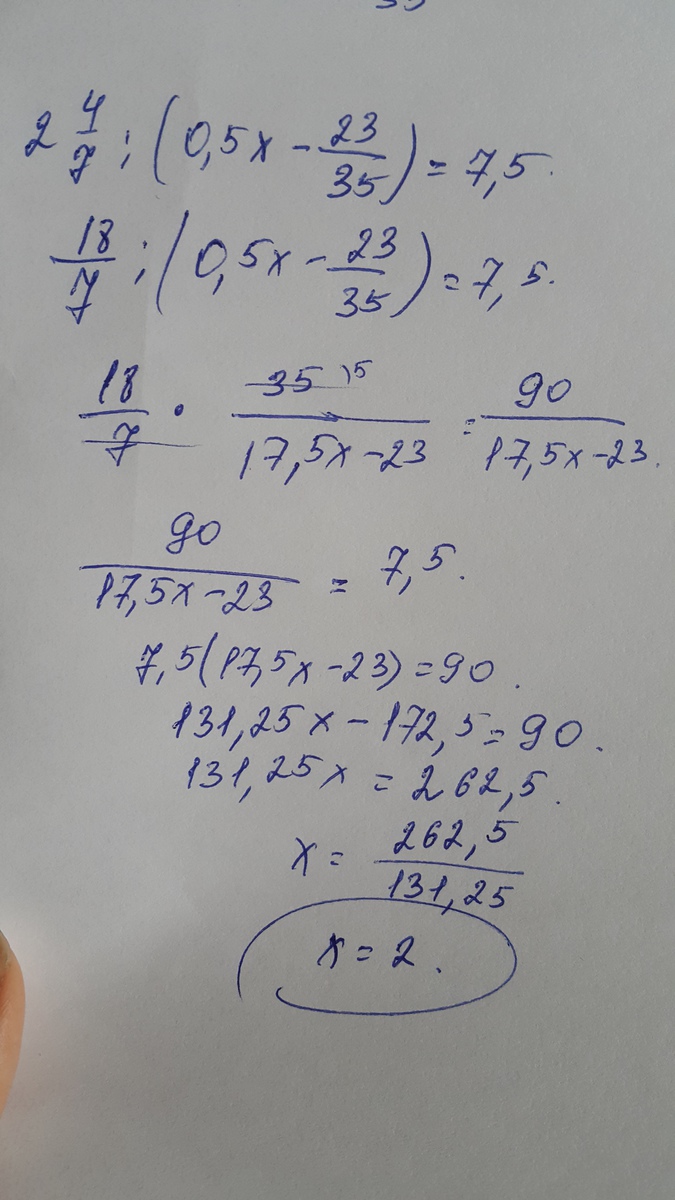 2 4/7 : (0,5x - 23/35) = 7,5.
18/7 : (0,5x - 23/35) = 7,5.
18/7 · 35 5/17,5x - 23 = 90/17,5x - 23.
90/17,5x - 23 = 7,5.
7,5(17,5x - 23) = 90.
131,25x - 172,5 = 90.
131,25x = 262,5.
x = 262,5/131,25
x = 2.